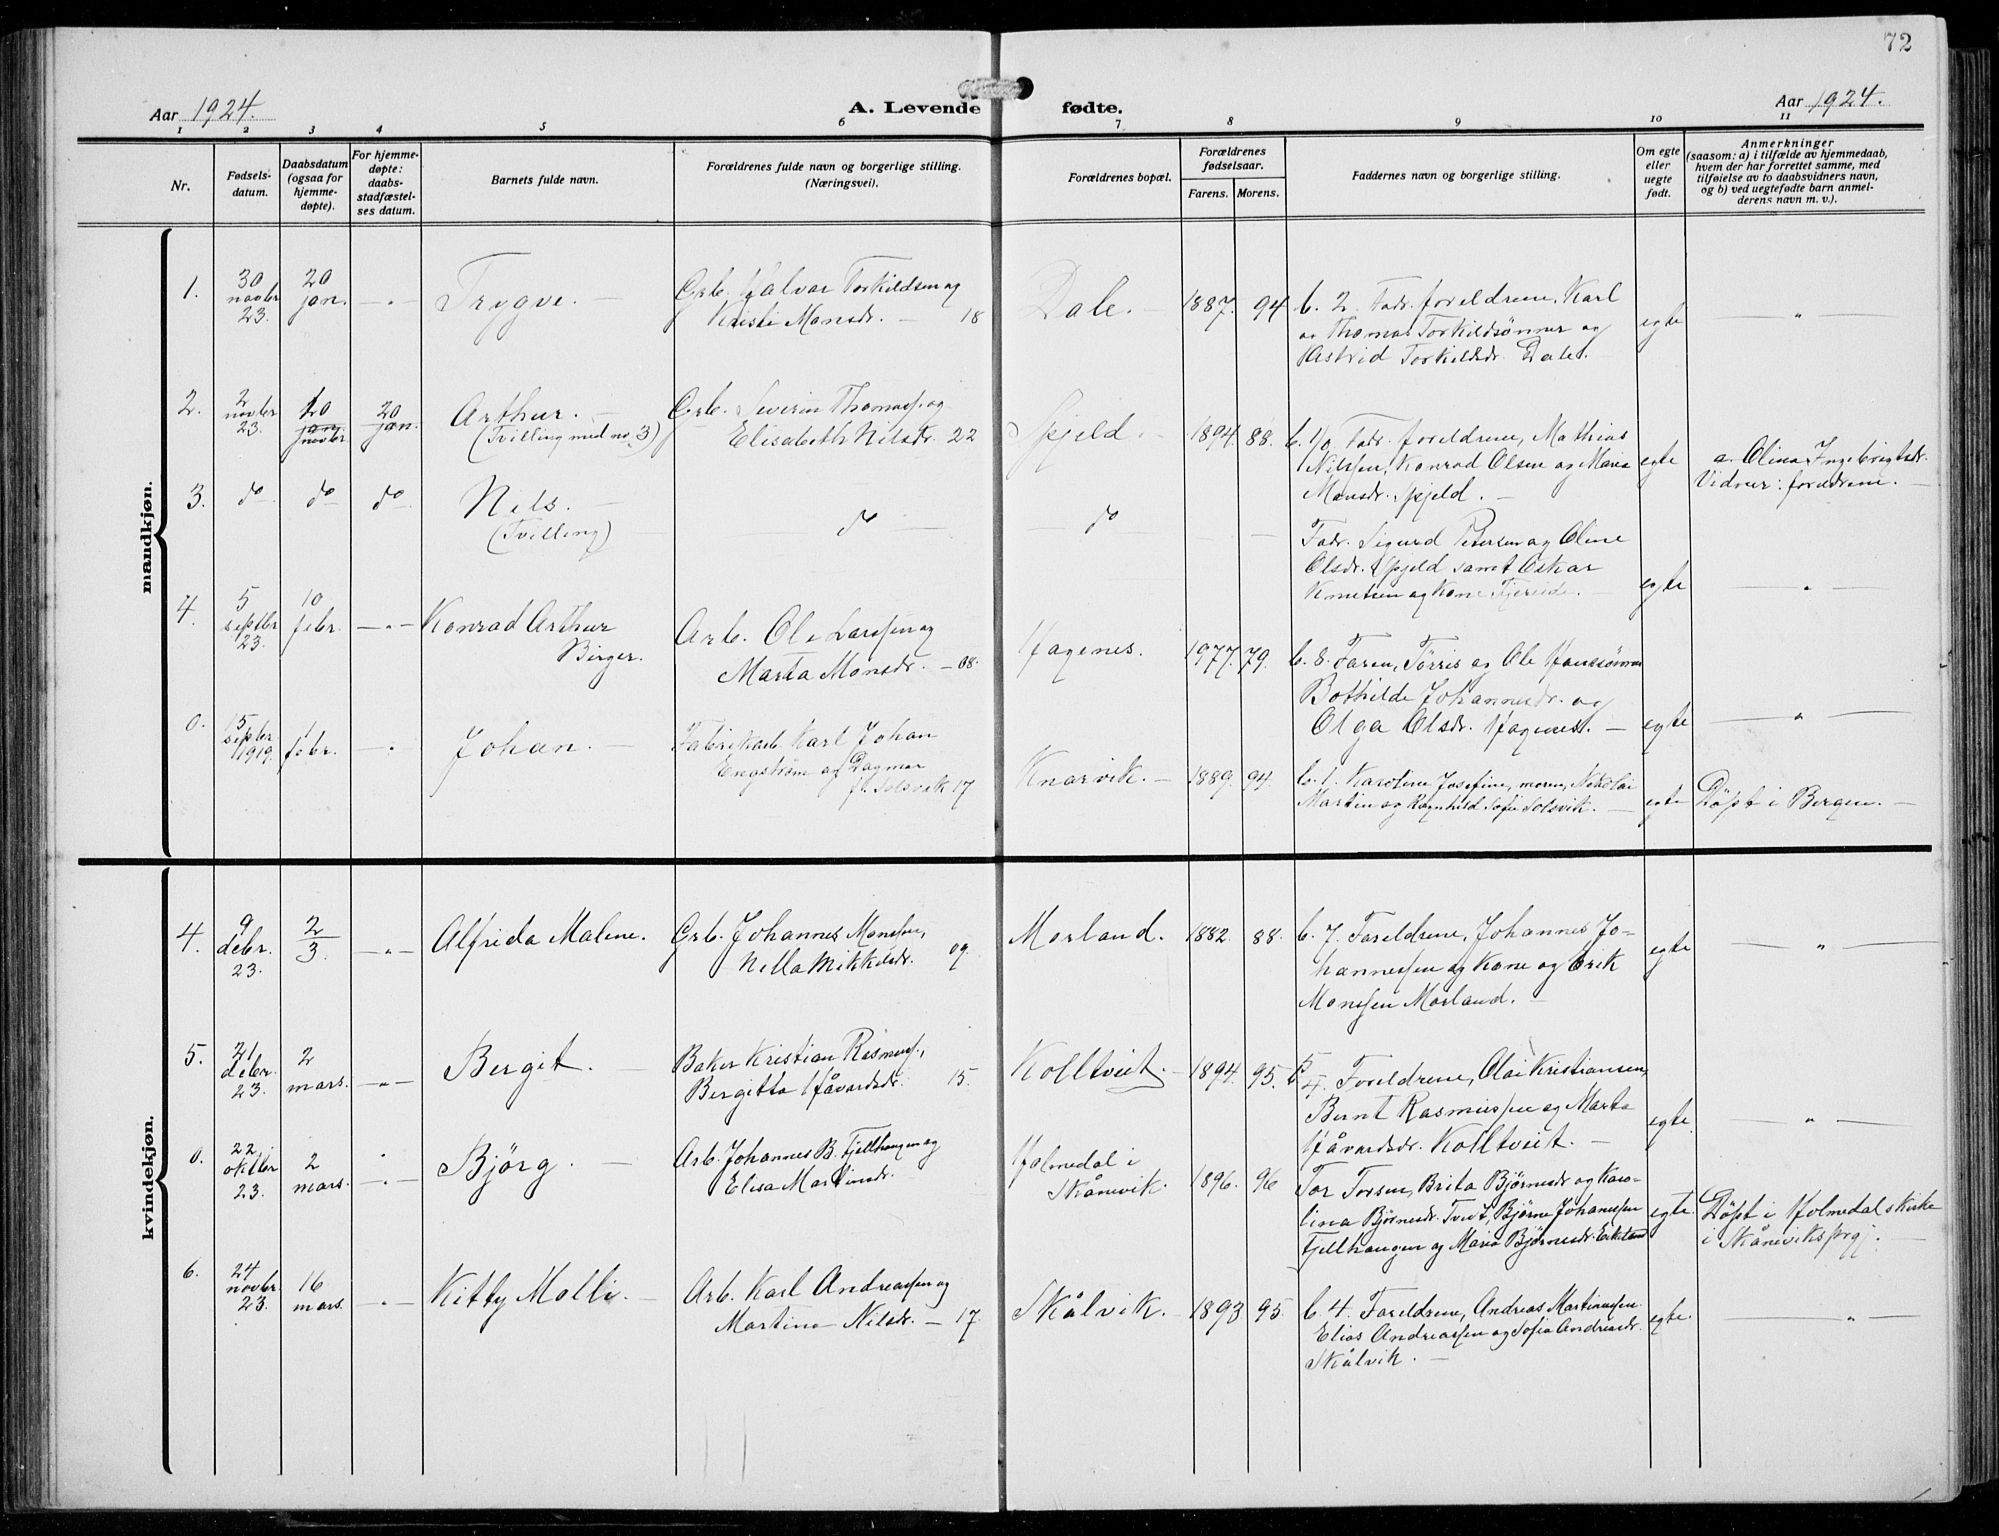 72
Aar 1924.
A. Levende fødte.
Aar 1924.
1 2 3 4 5 6 7 8 9 10 11
Nr.
Fødsels-
datum.
Daabsdatum
(ogsaa for
hjemme-
døpte).
For hjemme-
døpte:
daabs-
stadfæstel-
ses datum.
Barnets fulde navn.
Forældrenes fulde navn og borgerlige stilling.
(Næringsvei).
Forældrenes bopæl.
Forældrenes
fødselsaar.
Farens. Morens.
Faddernes navn og borgerlige stilling.
Om egte
eller
uegte
født.
Anmerkninger
(saasom: a) i tilfælde av hjemmedaab,
hvem der har forrettet samme, med
tilføielse av to daabsvidners navn,
og b) ved uegtefødte barn anmel-
derens navn m. v.).
mandkjøn.
1.
30
novbr
23.
20
jan.
Trygve.
Grb. Halvar Torkildsen og
Kristi Monsdr. — 18
Dale.
1887. 94
b. 2. Fadr. foreldrene, Karl
og Thomas Torkildsønner og
Astrid Torkildsdr. Dale.
egte
2.
2
novbr
23.
novbr
20
jan.
Arthur.
(Tvilling med no. 3)
Grb. Severin Thomass. og
Elisabeth Nilsdr. 22
Spjeld.
1894. 88.
b. 1/0 Fadr. foreldrene, Mathias
Nilssen, Konrad Olsen og Maria
Monsdr. Spjeld.
egte
a. Olina Ingebrigtsdr.
Vidner: foreldrene.
3.
do
do
do
Nils.
(Tvilling)
do
do
Fadr. Sigurd Petersen og Oline
Olsdr. Spjeld samt Oskar
Knutsen og Kone
egte
4.
5
septbr
23.
10
febr.
Konrad Arthur
Birger.
Arb. Ole Larssen og
Marta Monsdr. — 08.
Hagenes.
1977. 79.
b. 8. Faren, Tørris og Ole Hanssønner
Bothilde Johannesdr. og
Olga Olsdr. Hagenes.
egte
0.
15
septbr
1919.
febr.
Johan.
Fabrikarb. Karl Johan
Engstrøm og Dagmar
f. Solsvik 17
Knarvik.
1889. 94.
b. 1. Karoline Josefine, moren, Nikolai
Martin og Ragnhild Sofie Solsvik.
egte
Døpt i Bergen.
kvindekjøn.
4.
9
debr.
23.
2/3.
Alfrida Malene.
Grb. Johannes Monssen,
Nilla Mikkelsdr. 09.
Morland.
1882. 88.
b. 7. Foreldrene, Johannes Jo-
hannessen og Kone og Erik
Monssen Morland.
egte
5.
21
debr.
23.
2
mars.
Bergit.
Baker Kristian Rasmuss.,
Bergitta Håvardsdr. 15.
Kolltveit.
1894. 95.
Foreldrene, Olai Kristiansen,
Bernt Rasmussen og Marta
Håvardsdr. Kolltveit.
egte
0.
22.
oktbr
23.
2
mars.
Bjørg.
Arb. Johannes B. Fjellhaugen og
Elisa Martinsdr.
Holmedal i
Skånevik.
1896. 96
Tor Torsen, Brita Bjørnsdr og Karo-
lina Bjørnsdr. Tveit, Bjørne Johanessen
Fjellhaugen og Maria Bjørnesdr. Eikeland
egte
Døpt i Holmedal skirke
i Skåneviks prgj.
6.
24
novbr
23.
16
mars.
Kitty Molli.
Arb. Karl Andreassen og
Martina Nilsdr. — 17.
Skålvik.
1893 95.
b. 4. Foreldrene, Andreas Martinussen
Elias Andreassen og Sofia Andreasdr.
Skålvik.
egte.